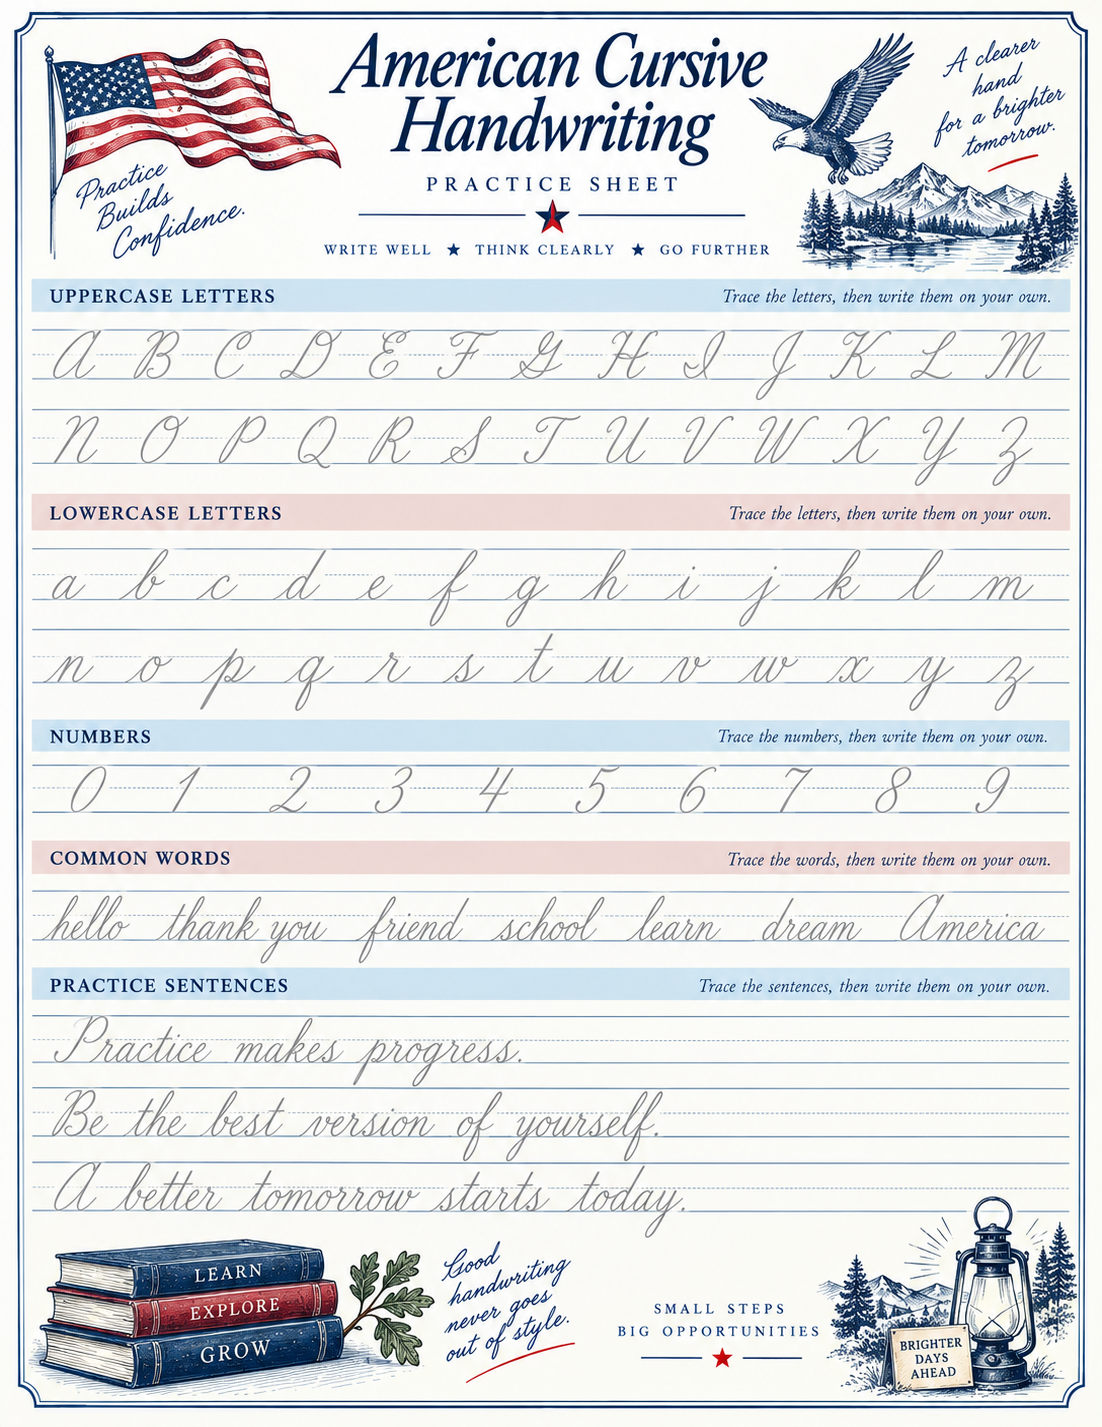 American Cursive
Handwriting
PRACTICE SHEET
WRITE WELL ★ THINK CLEARLY ★ GO FURTHER
Practice
Builds
Confidence.
A clearer
hand
for a brighter
tomorrow.
UPPERCASE LETTERS Trace the letters, then write them on your own.
A B C D E F G H I J K L M
N O P Q R S T U V W X Y Z
LOWERCASE LETTERS Trace the letters, then write them on your own.
a b c d e f g h i j k l m
n o p q r s t u v w x y z
NUMBERS Trace the numbers, then write them on your own.
0 1 2 3 4 5 6 7 8 9
COMMON WORDS Trace the words, then write them on your own.
hello thank you friend school learn dream America
PRACTICE SENTENCES Trace the sentences, then write them on your own.
Practice makes progress.
Be the best version of yourself.
A better tomorrow starts today.
LEARN
EXPLORE
GROW
Good
handwriting
never goes
out of style.
SMALL STEPS
BIG OPPORTUNITIES
BRIGHTER
DAYS
AHEAD